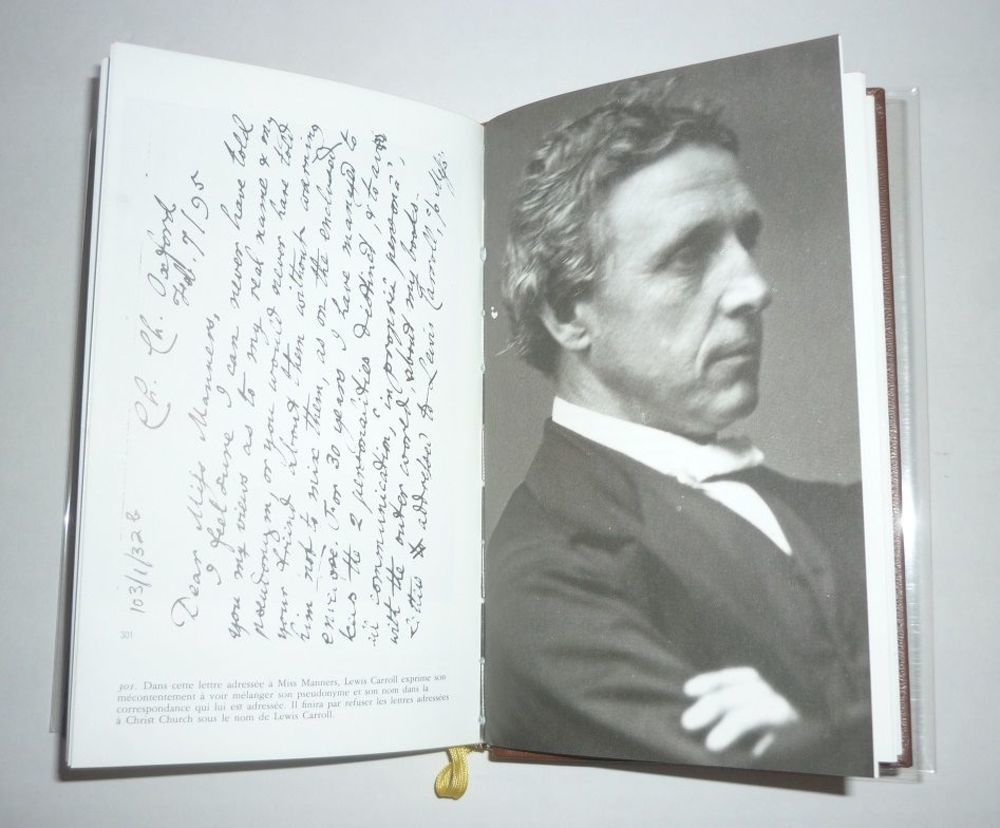 103/1/32 b
Ch. Ch. Oxford
Feb. 7/95
Dear Miss Manners,
I feel sure I can never have told
you my views as to my real name & my
pseudonym, or you would never have told
your friend about them without warning
him not to mix them, as on the enclosed
envelope. For 30 years I have managed to
keep the 2 personalities distinct, & to avoid
all communication, in propriâ personâ,
with the outer world, about my books.
addressed to Lewis Carroll,
301
301. Dans cette lettre adressée à Miss Manners, Lewis Carroll exprime son
mécontentement à voir mélanger son pseudonyme et son nom dans la
correspondance qui lui est adressée. Il finira par refuser les lettres adressées
à Christ Church sous le nom de Lewis Carroll.